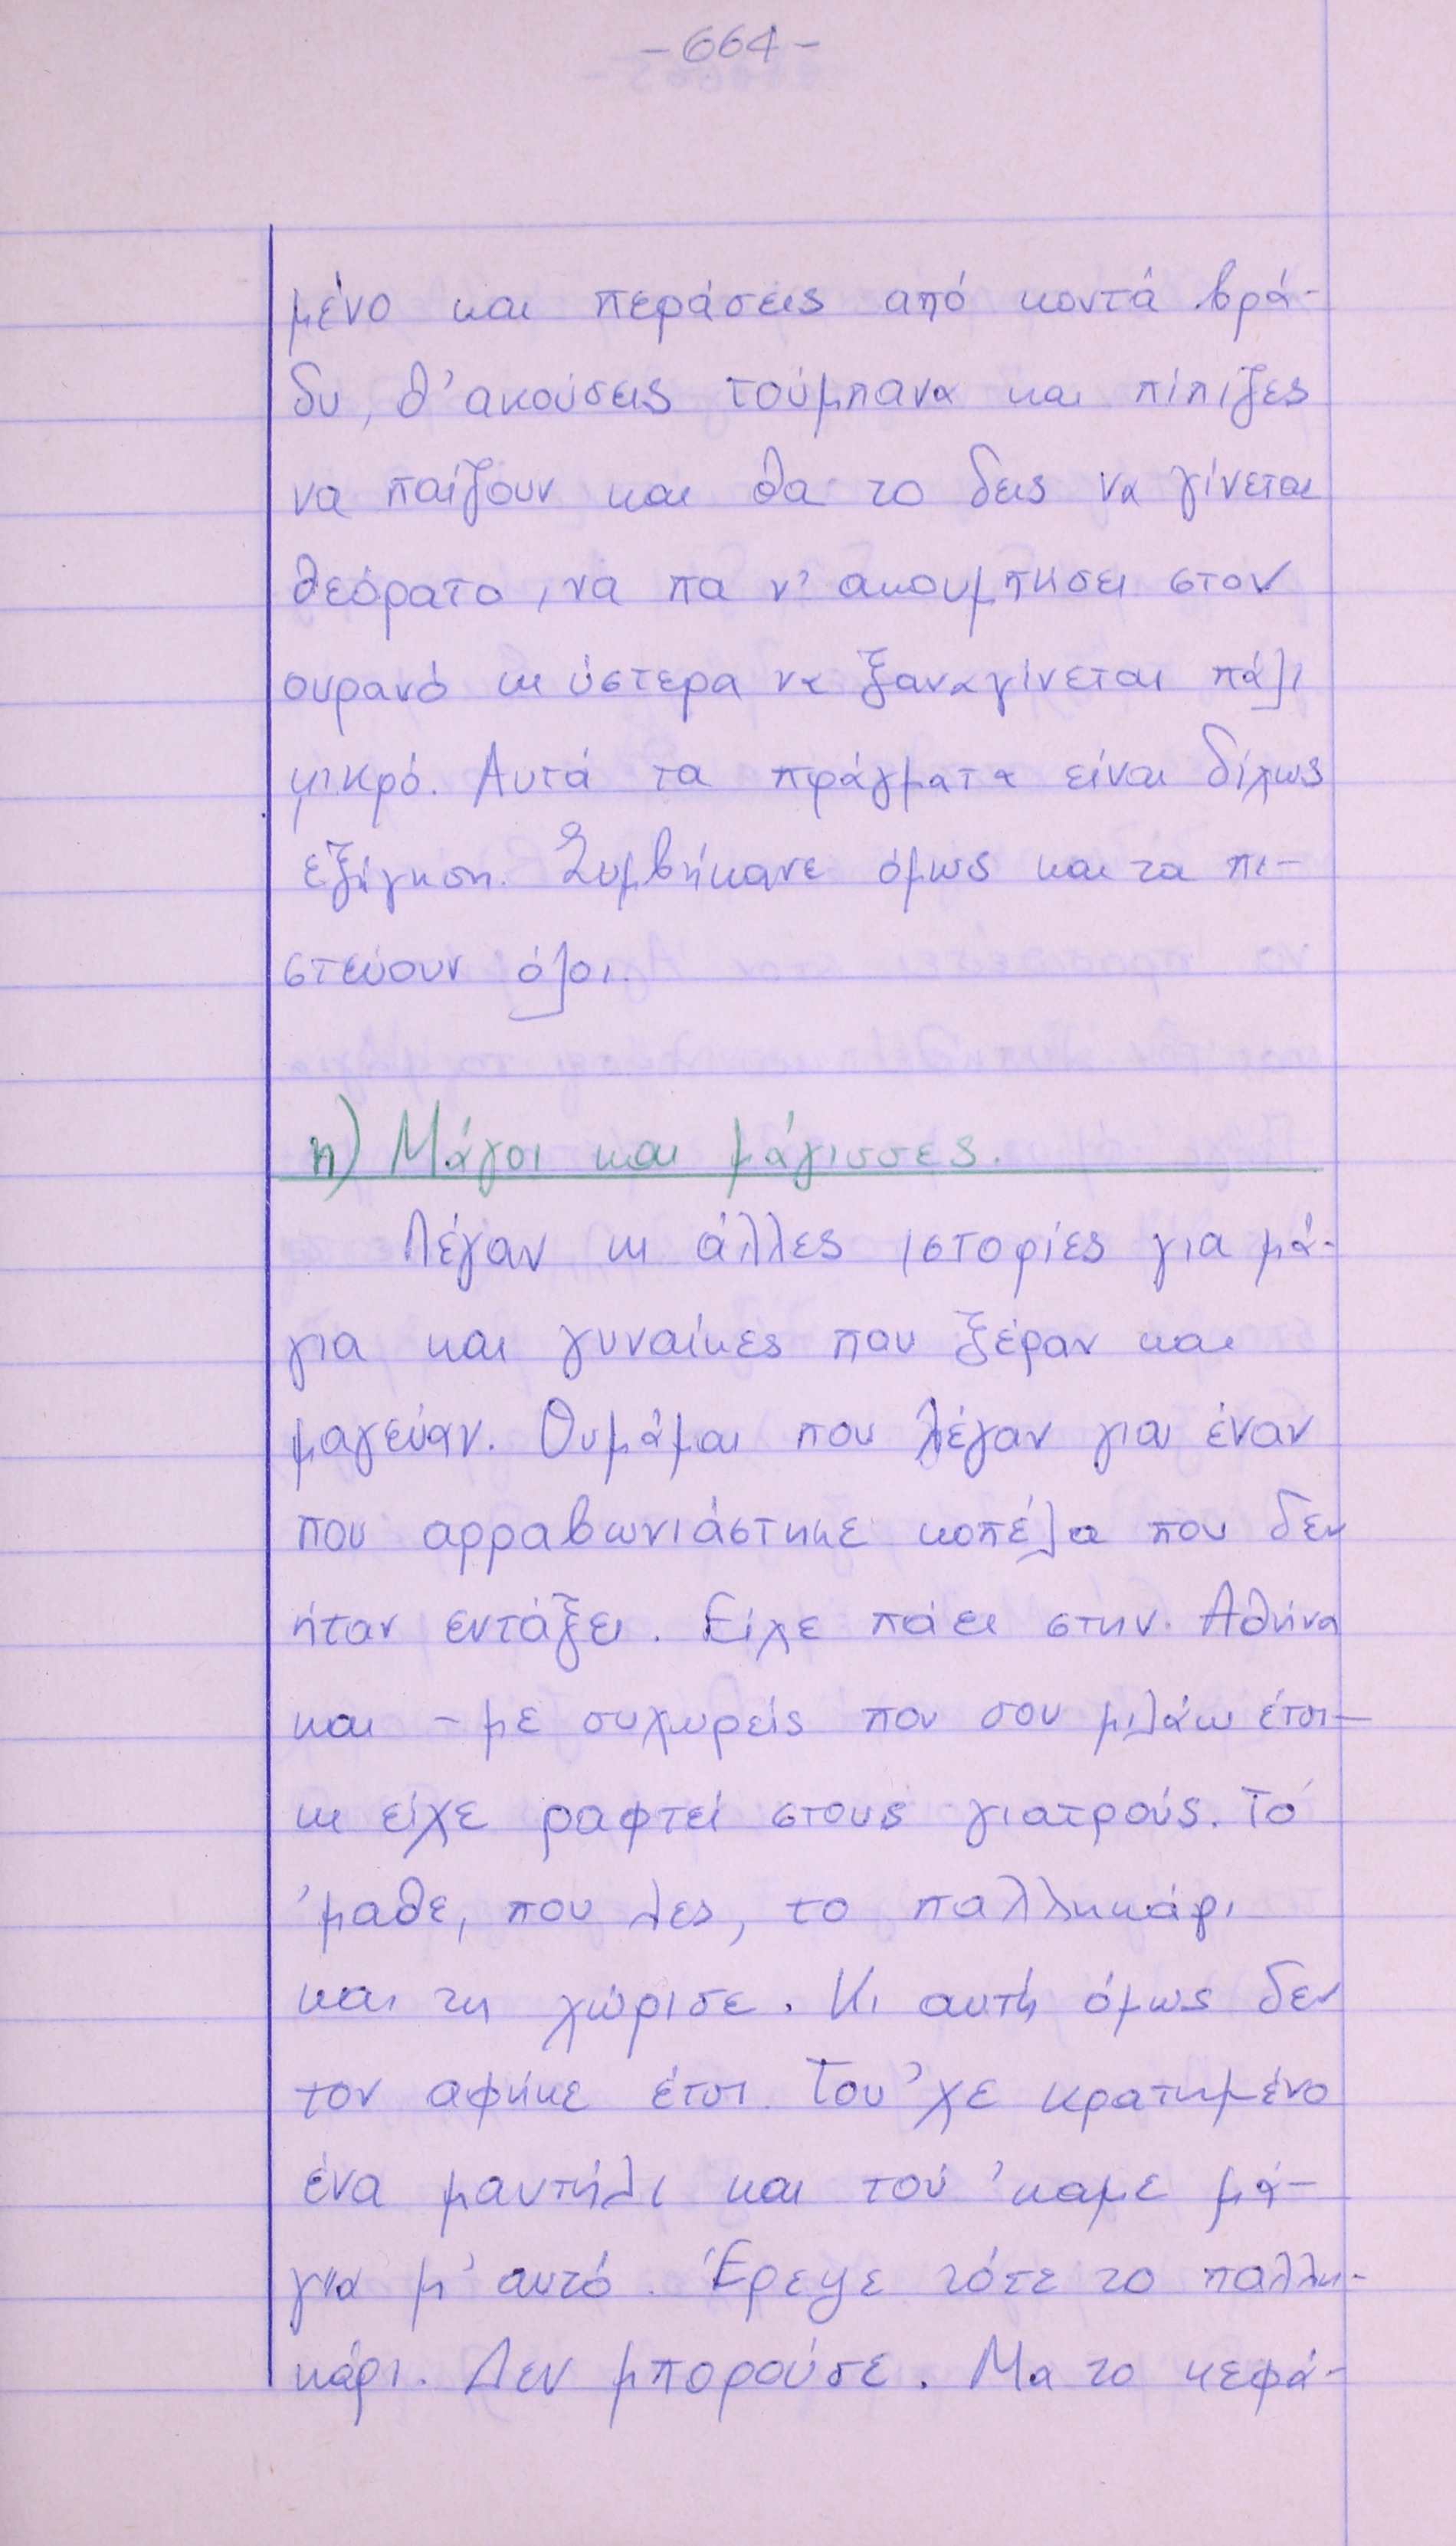 -664-
μένο και περάσεις από κοντά βρά-
δυ, θ' ακούσεις τούμπανα και πίπιζες
να παίζουν και θα το δεις να γίνεται
θεόρατο, να πα ν' ακουμπησει στον
ουρανό κι ύστερα να ξαναγίνεται πάλι
μικρό. Αυτά τα πράγματα είναι δίχως
εξήγηση. Συμβήκανε όμως και τα πι-
στεύουν όλοι.
η) Μάγοι και μάγισσες.
Λέγαν κι άλλες ιστορίες για μά-
για και γυναίκες που ξέραν και
μαγεύαν. Θυμάμαι που λέγαν για έναν
που αρραβωνιάστηκε κοπέλα που δεν
ήταν εντάξει. Είχε πάει στην Αθήνα
και - με συχωρείς που σου μιλάω έτσι-
κι είχε ραφτεί στους γιατρούς. Τό
'μαθε, που λες, το παλληκάρι
και τη χώρισε. Κι αυτή όμως δεν
τον αφήκε έτσι. Του 'χε κρατημένο
ένα μαντήλι και τού 'καμε μά-
για μ' αυτό. Έρεψε τότε το παλλη-
κάρι. Δεν μπορούσε. Μα το κεφά-